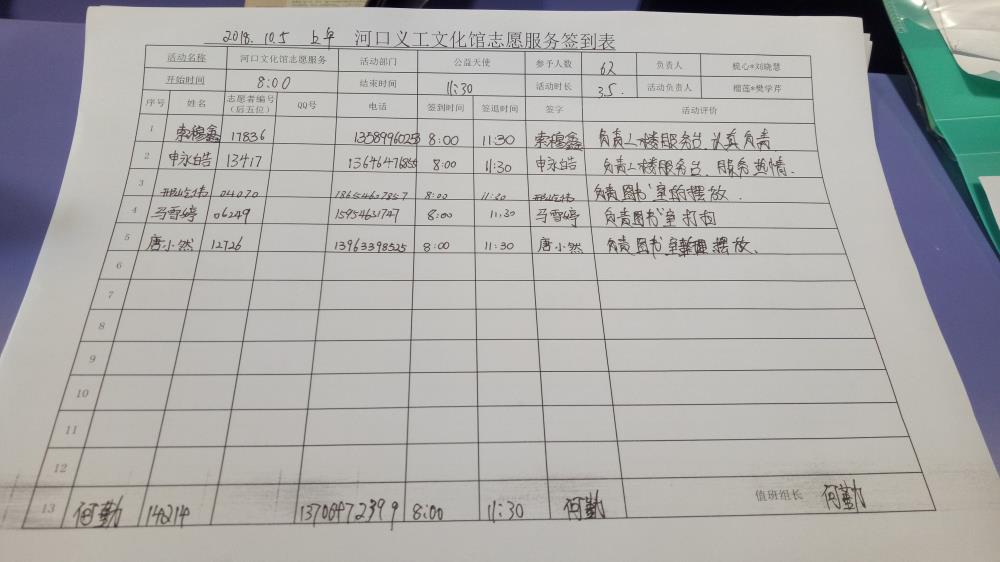 2018.10.5 上午 河口义工文化馆志愿服务签到表
活动名称 河口文化馆志愿服务 活动部门 公益天使 参予人数 6人 负责人 枧心*刘晓慧
开始时间 8:00 结束时间 11:30 活动时长 3.5. 活动负责人 榴莲*樊学芹
序号 姓名 志愿者编号（后五位） QQ号 电话 签到时间 签退时间 签字 活动评价
1 索穆鑫 17836 13589960253 8:00 11:30 索穆鑫 负责一楼服务台.认真负责
2 申永皓 13417 13646476855 8:00 11:30 申永皓 负责一楼服务台.服务热情.
3 04070 18654627857 8:00 11:30 负责图书室的摆放.
4 马雪婷 06249 15954631747 8:00 11.30 马雪婷 负责图书室打扫
5 唐小然 12726 13963398525 8:00 11:30 唐小然 负责图书室整理摆放.
6
7
8
9
10
11
12
13 何勤 14214 13706472399 8:00 11:30 何勤 值班组长 何勤